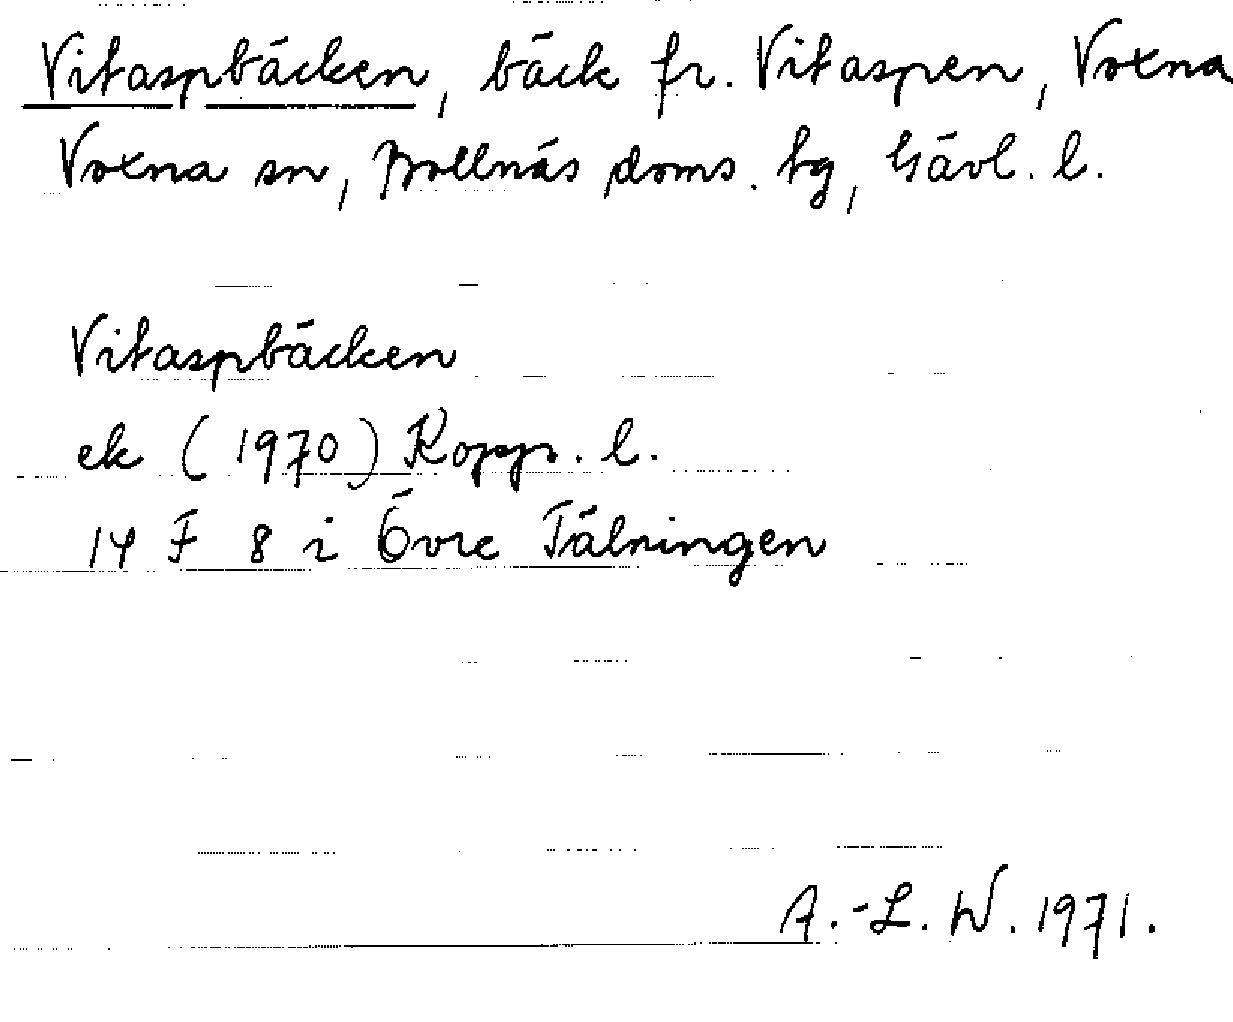 Vitaspbäcken, bäck fr. Vitaspen, Voxna
Voxna sn, Bollnäs doms. tg, Gävl. l.
Vitaspbäcken
ek (1970) Kopp. l.
14 F 8 i Övre Tälningen
A.-L. W. 1971.